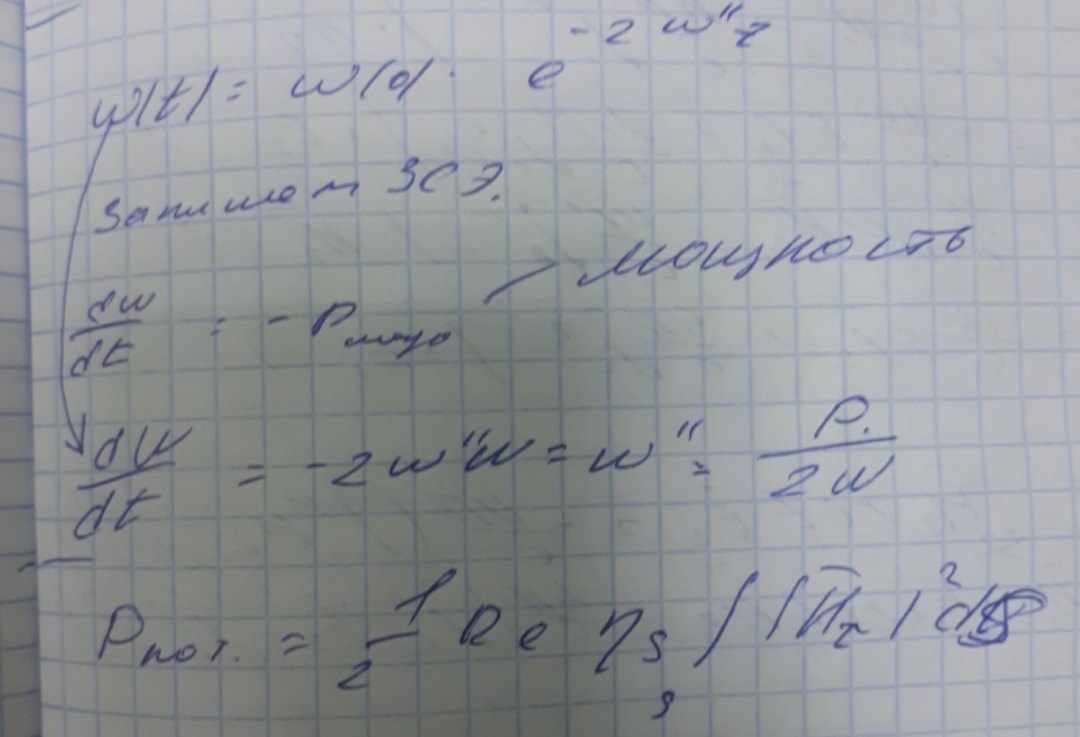 W(t) = W(0) · e^{-2 ω'' t}
Запишем ЗСЭ.
dW/dt = - P — мощность
dW/dt = -2 ω'' W = ω'' = P./2W
Pпот. = 1/2 Re η_s ∫_s |H̄_τ|² dS